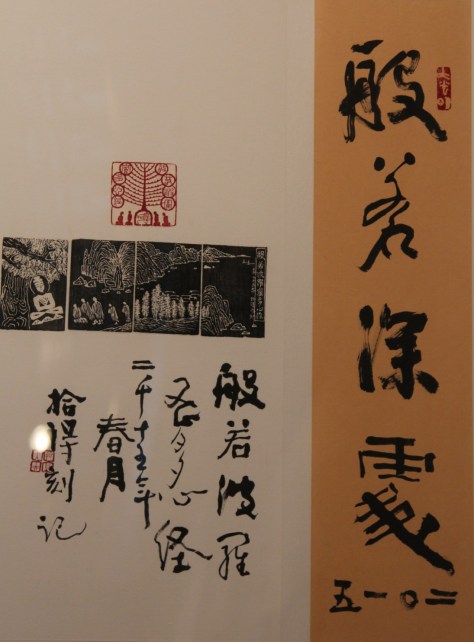 般若深處
二〇一五
般若波羅
蜜多心経
二千十五年
春月
拾得刻记